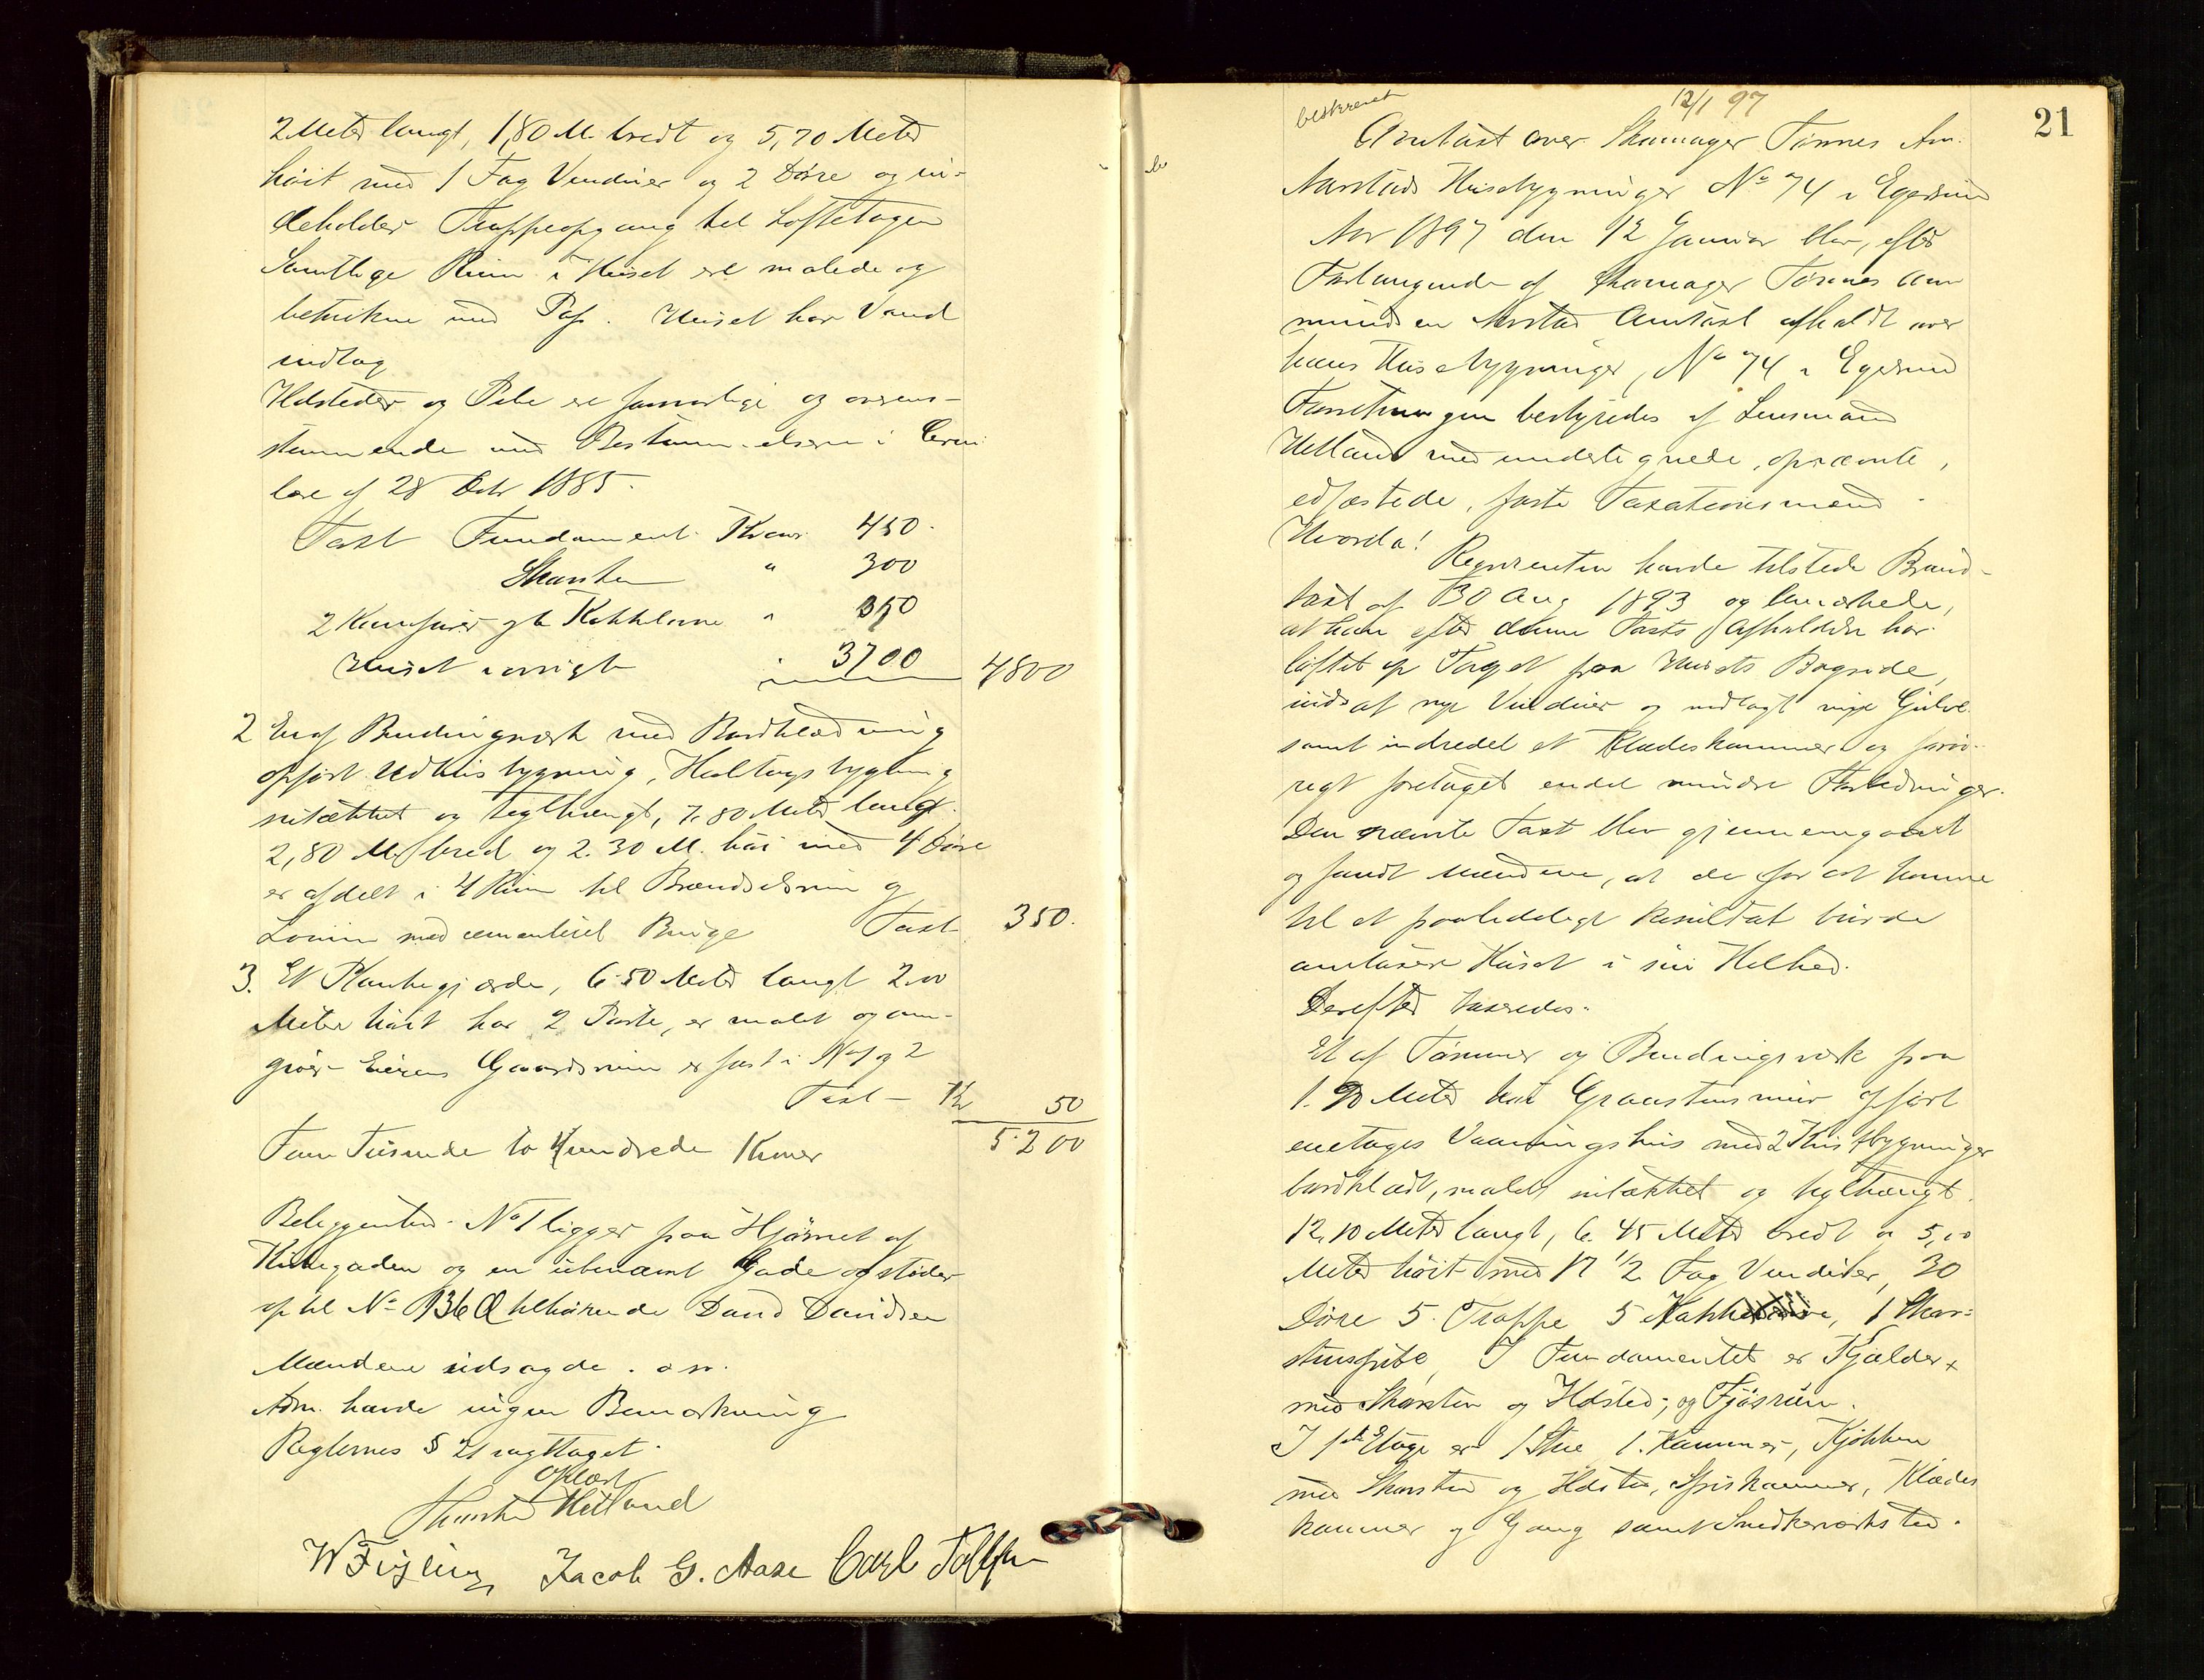 2 Meter langt, 1,80 M. bredt og 5,70 Meter
høit med 1 Fag Vinduer og 2 Døre og in-
deholder Trappeopgang til Loftetagen
Samtlige Rum i Huset ere malede og
betrukne med Pap. Huset har Vand
indlag
Ildsteder og Pibe ere forsvarlige og overens-
stemmende med Bestemmelserne i Cirku
lære af 28 Octr 1885.
Taxt Fundament Kroner 450.
Skorsten " 300
2 Komfurer og 6 Kakkelovne " 350
Huset iøvrigt " 3700 4800
2 En af Bindingsværk med Bordklædning
opført Udhusbygning, Halvtagsbygning
sutækket og teglhængt, 7,80 Meter lang
2,80 M. bred og 2.30 M. høi med 4 Døre
er afdelt i 4 Rum til Brændselsrum og
Lorum med cementeret Binge Taxt 350.
3. Et Plankegjærde, 6.50 Meter langt 2.00
Meter høit har 2 Porte, er malet og om-
giver Eierens Gaardsrum er fast i No 1 og 2
Taxt - Kr 50
Fem Tusinde to Hundrede Kroner 5200
Beliggenhed. No 1 ligger paa Hjørnet af
Kirkegaden og en ubenævnt Gade og støder
op til No 136 a tilhørende David Davidsen
Mændene udsagde. o s v.
Adm. havde ingen Bemærkning
Reglernes § 21 iagttaget.
Oplæst
Thorsten Hetland
Jacob G. Aase Carl Tollefsen
21
beskrevet
12/1 97
Omtaxt over Skomager Tønnes Am.
Aarstads Husebygninger No 74 i Egersund
Aar 1897 den 12 Januar blev, efter
Forlangende af Skomager Tønnes Aam
mundsen Aarstad Omtaxt afholdt over
hans Husebygninger, No 74 i Egersund
Forretningen bestyredes af Lensmand
Hetland med undertegnede, opnævnte,
edfæstede, faste Taxationsmænd.
Hvorda!
Rekvirenten havde tilstede Brand-
taxt af 30 Aug 1893 og bemærkede,
at han efter denne Taxts Afholdelse har
løftet op Taget paa Husets Bagside,
indsat nye Vinduer og indlagt nye Gulve
samt indredet et Klædeskammer og forøv-
rigt foretaget endel mindre Forbedringer.
Den nævnte Taxt blev gjennemgaaet
og fandt Mændene, at de for at komme
til et paalideligt Resultat burde
omtaxere Huset i sin Helhed.
Derefter taxeredes:
Et af Tømmer og Bindingsværk paa
1.90 Meter høi Graastensmuur opført
enetages Vaaningshus med 2 Kvistbygninger
bordklædt, malet sutækket og teglhængt.
12,10 Meter langt, 6.45 Meter bredt og 5,00
Meter høit med 17 1/2 Fag Vinduer, 30
Døre 5. Trappe 5 Kakkelovne, 1 Skor-
stenspibe, I Fundamentet er Kjælder x
med Skorsten og Ildsted; og Fjøsrum.
I 1ste Etage er 1 Stue 1. Kammer, Kjøkken
med Skorsten og Ildsted, Spiskammer, Klædes
kammer og Gang samt Snedkerværksted.